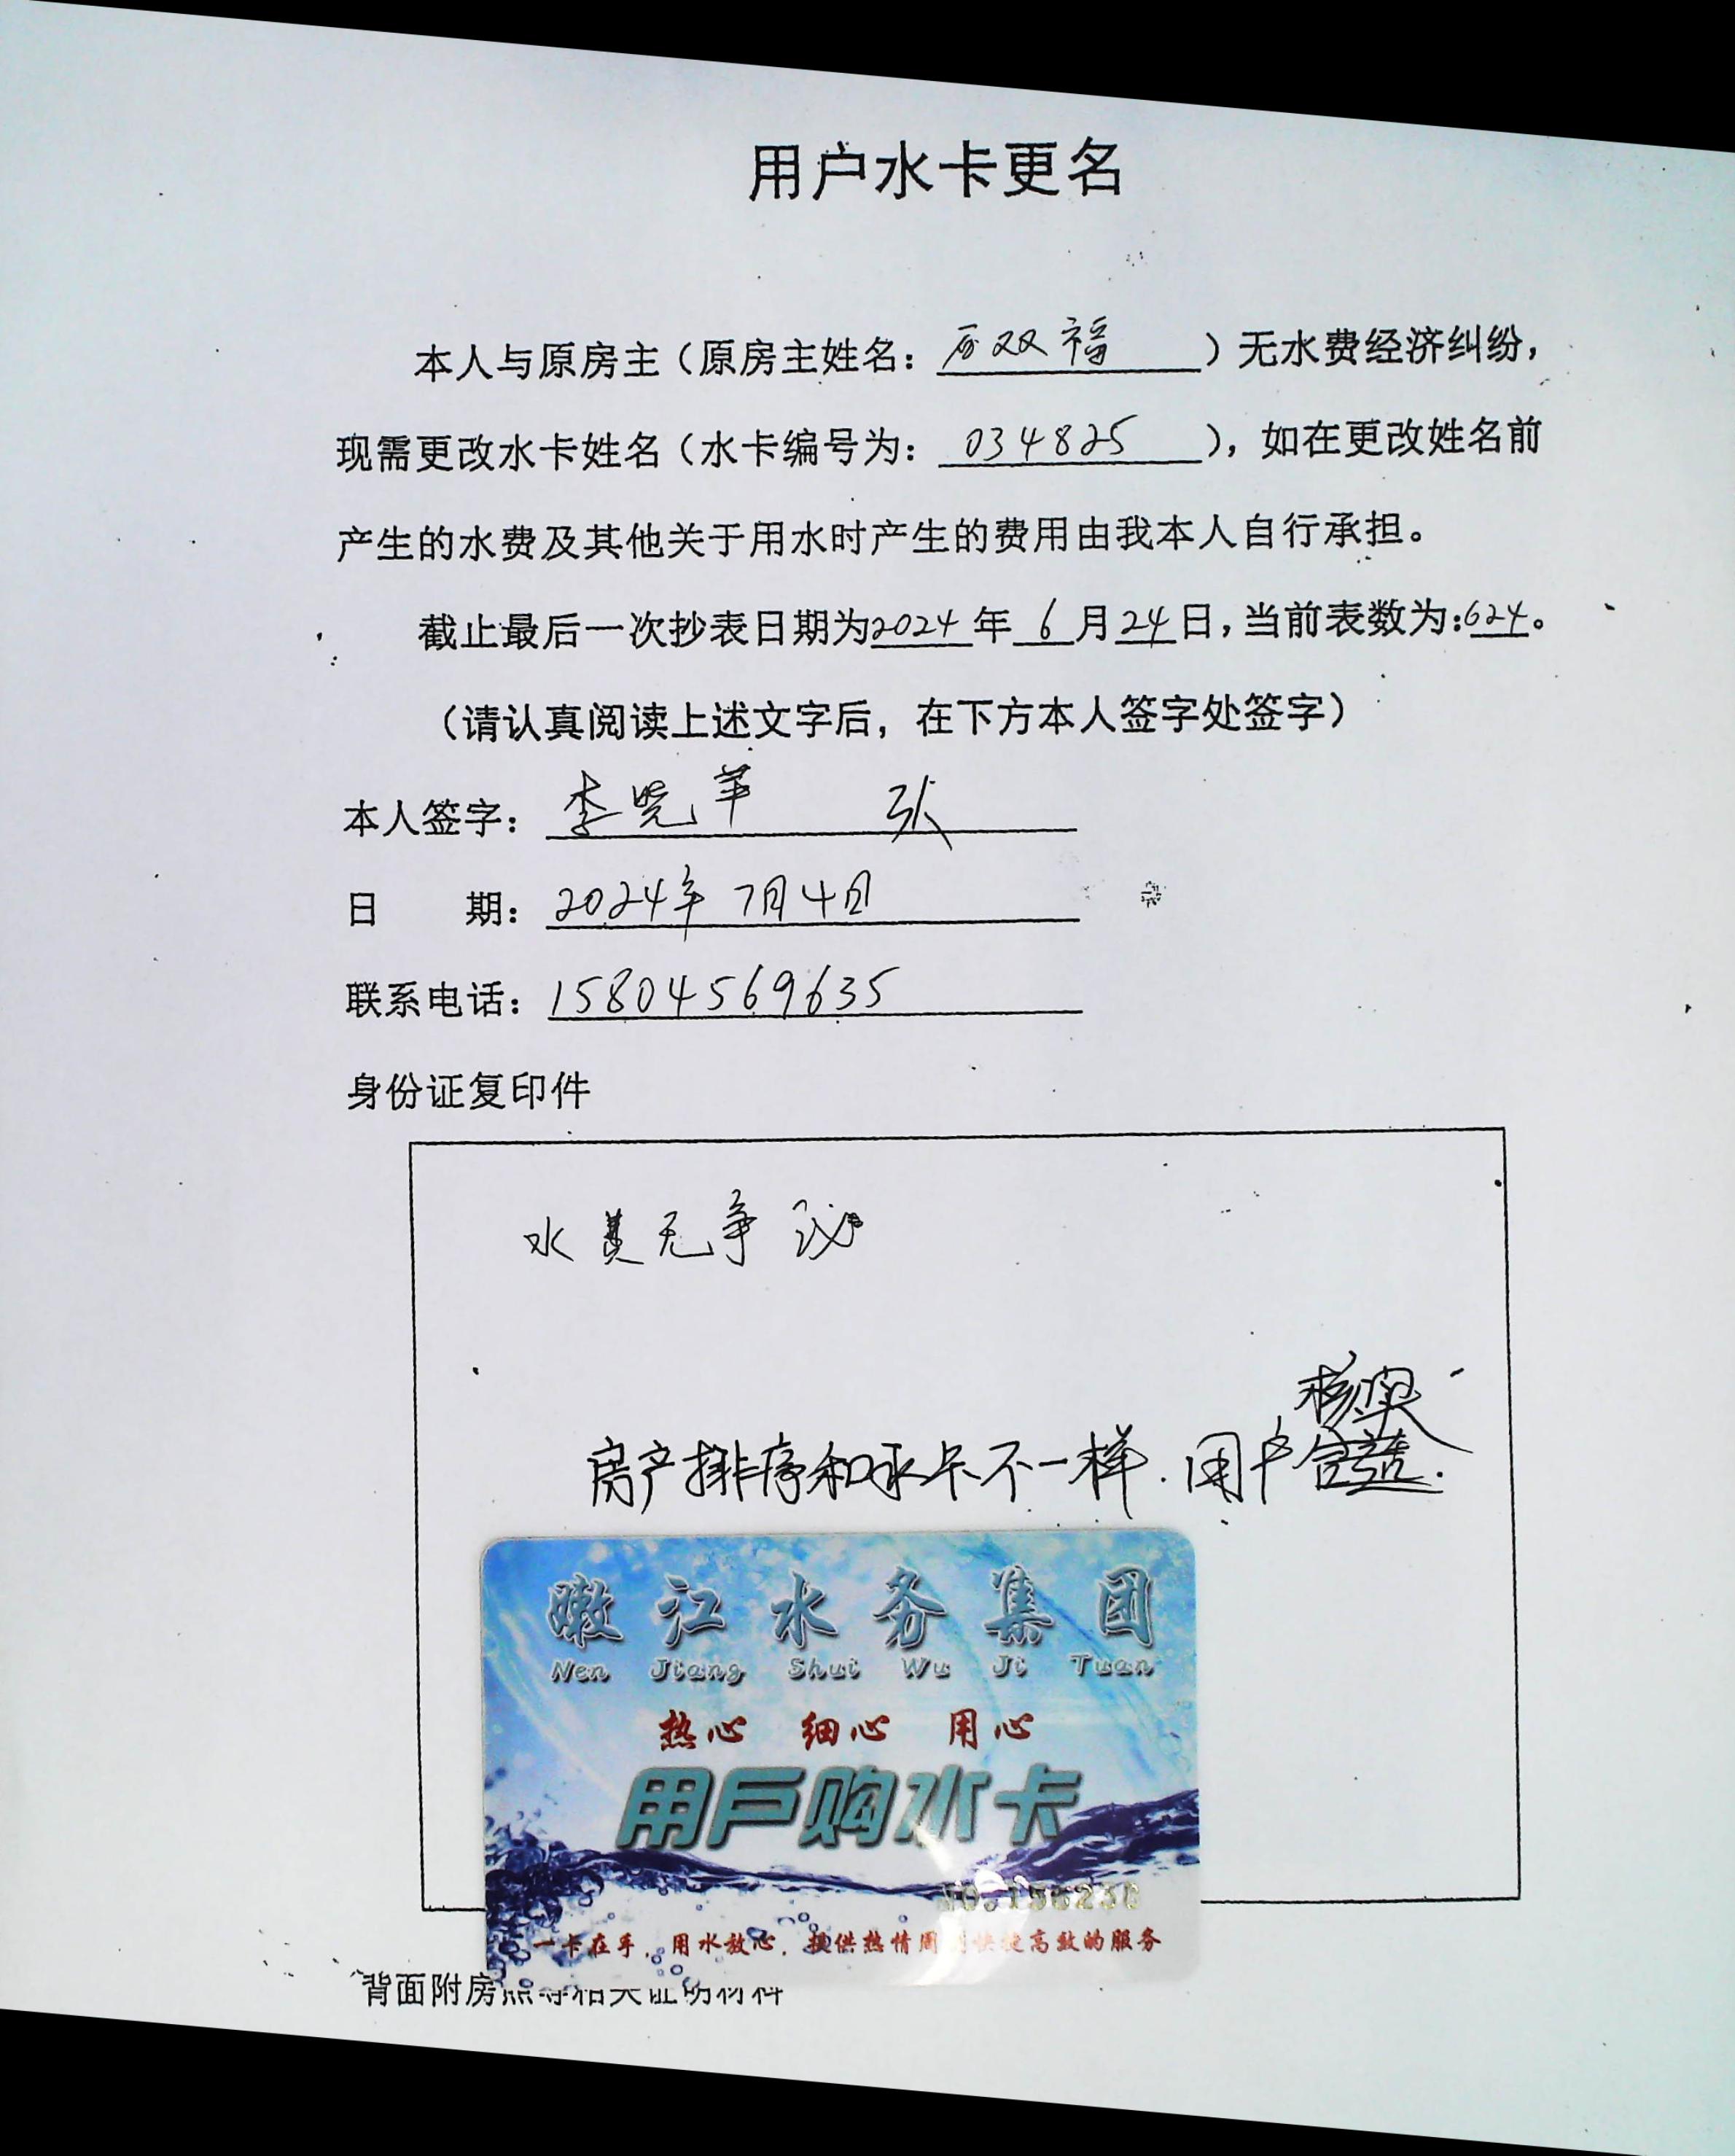 用户水卡更名
本人与原房主（原房主姓名：双福）无水费经济纠纷，
现需更改水卡姓名（水卡编号为：034825），如在更改姓名前
产生的水费及其他关于用水时产生的费用由我本人自行承担。
截止最后一次抄表日期为2024年6月24日，当前表数为:624。
（请认真阅读上述文字后，在下方本人签字处签字）
本人签字：李晓 张
日 期：2024年7月4日
联系电话：15804569635
身份证复印件
水费无争议
核实
房产排序和水卡不一样.用户
嫩江水务集团
Nen Jiang Shui Wu Ji Tuan
热心 细心 用心
用戶购水卡
一卡在手，用水放心，提供热情周快捷高效的服务
背面附房照等相关证明材料